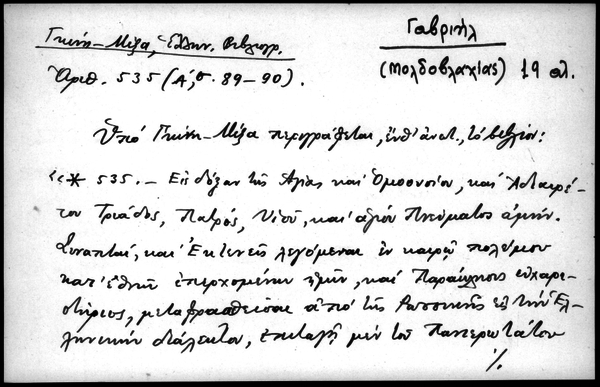 Γαβριήλ
Γκίνη-Μέξα, Ἑλλην. Βιβλιογρ.
(Μολδοβλαχίας) 19 αἰ.
Ἀριθ. 535 (Α΄, σ. 89-90).
Ὑπό Γκίνη-Μέξα περιγράφεται, ἔνθ' ἀνωτ., τό βιβλίον:
«* 535. — Εἰς δόξαν τῆς Ἁγίας καί Ὁμοουσίου, καί Ἀδιαιρέ-
του Τριάδος, Πατρός, Υἱοῦ, καί ἁγίου Πνεύματος ἀμήν.
Συναπταί, καί Ἐκτενεῖς λεγόμεναι ἐν καιρῷ πολέμου
κατ' ἐθνῶν ἐπερχομένων ἡμῖν, καί Παράκλησις εὐχαρι-
στήριος, μεταφρασθεῖσαι ἀπό τῆς Ρωσσικῆς εἰς τήν Ἑλ-
ληνικήν διάλεκτον, ἐπιταγῇ μέν τοῦ Πανιερωτάτου
./.